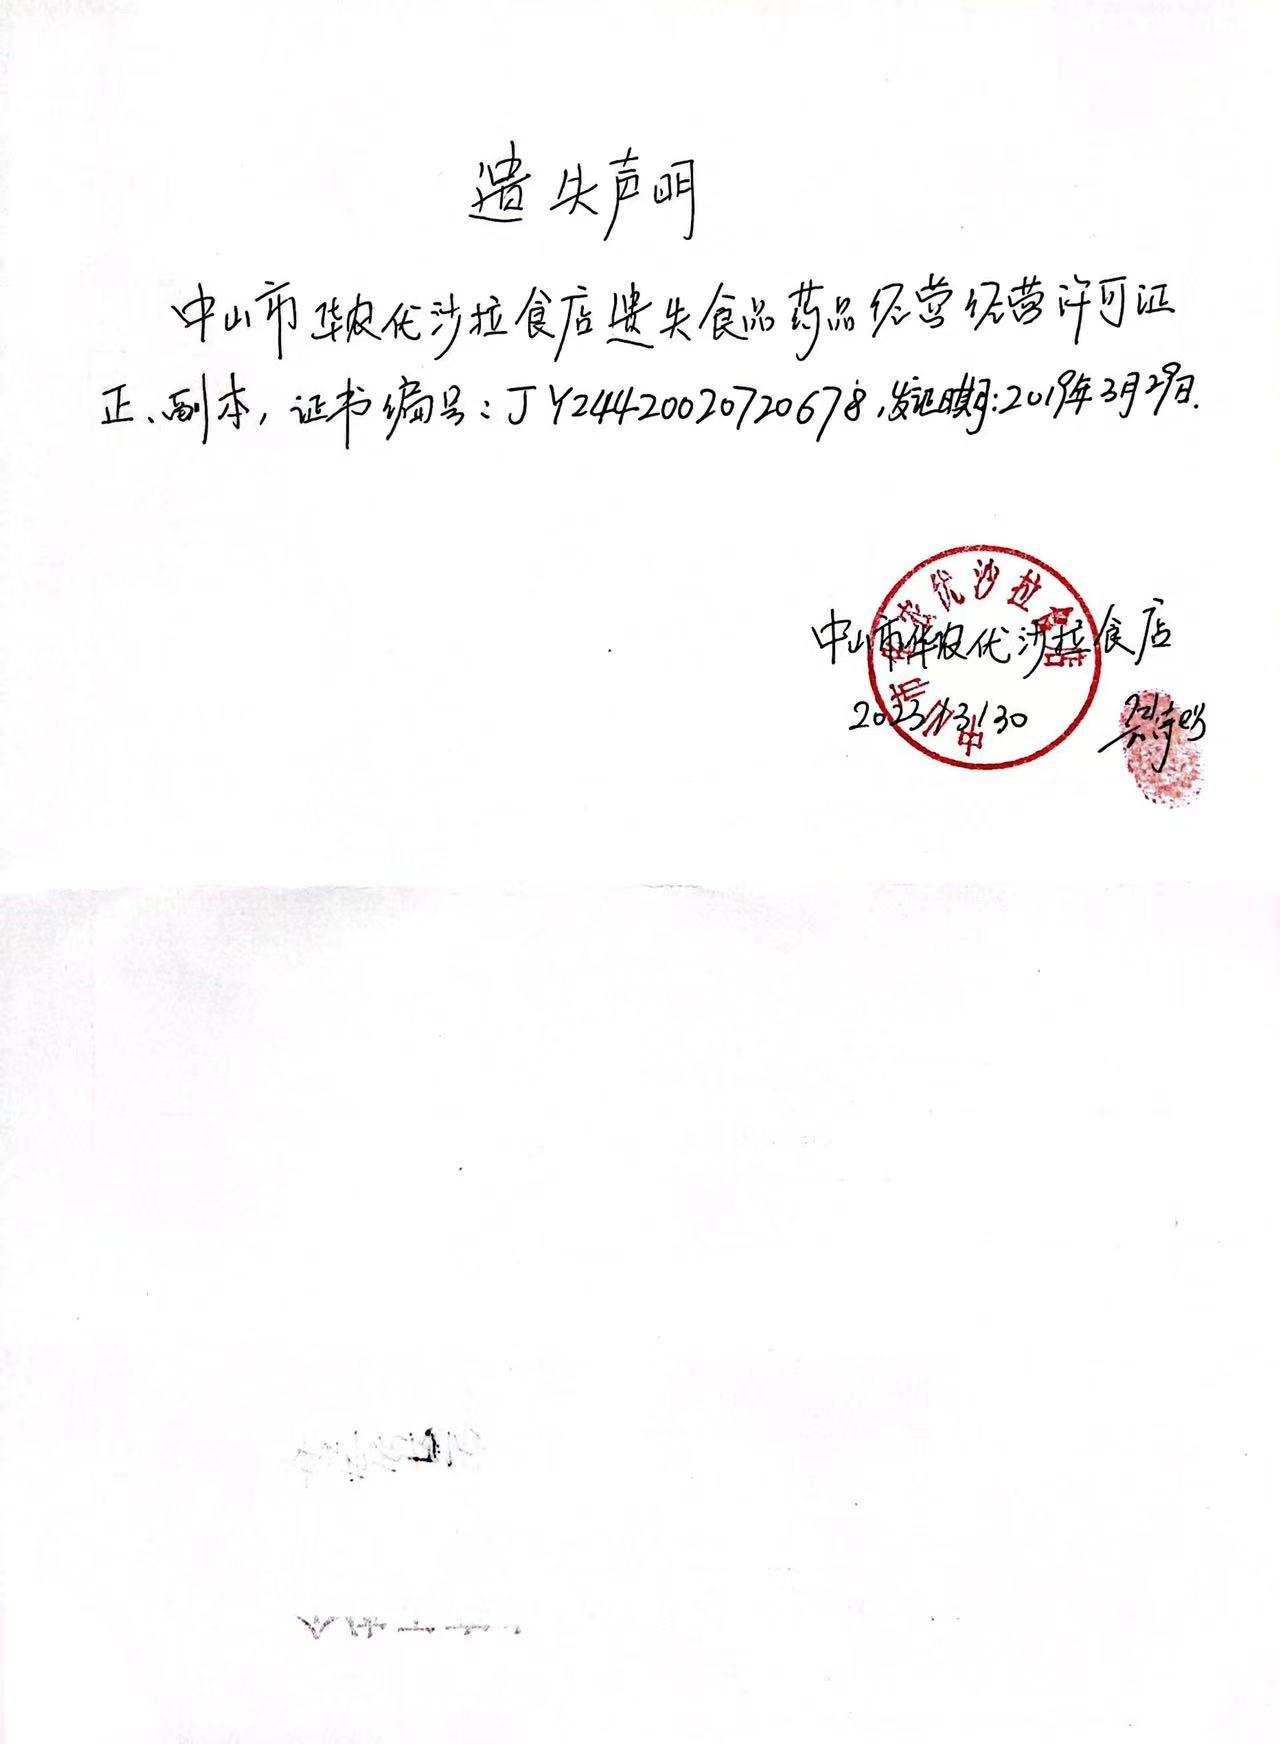 遗失声明
中山市华农优沙拉食店遗失食品药品经营经营许可证
正、副本，证书编号：JY24420020720678，发证日期：2019年3月29日.
中山市华农优沙拉食店
中山市华农优沙拉食店
2023/3/30